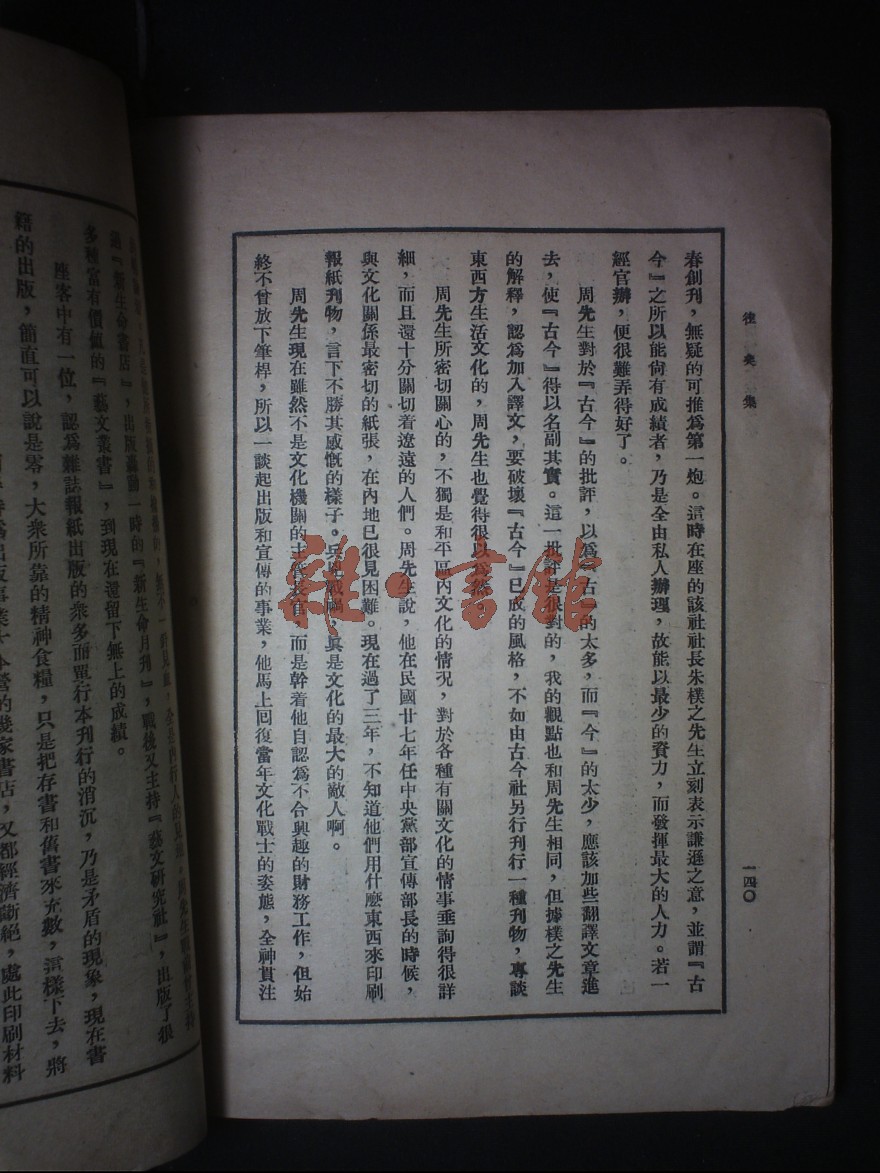 往矣集
一四〇
春創刊，無疑的可推爲第一炮。這時在座的該社社長朱樸之先生立刻表示謙遜之意，並謂『古
今』之所以能尙有成績者，乃是全由私人辦理，故能以最少的資力，而發揮最大的人力。若一
經官辦，便很難弄得好了。
周先生對於『古今』的批評，以爲『古』的太多，而『今』的太少，應該加些翻譯文章進
去，使『古今』得以名副其實。這一批評是很對的，我的觀點也和周先生相同，但據樸之先生
的解釋，認爲加入譯文，要破壞『古今』已成的風格，不如由古今社另行刊行一種刊物，專談
東西方生活文化的，周先生也覺得很以爲然。
周先生所密切關心的，不獨是和平區內文化的情況，對於各種有關文化的情事垂詢得很詳
細，而且還十分關切着遼遠的人們。周先生說，他在民國廿七年任中央黨部宣傳部長的時候，
與文化關係最密切的紙張，在內地已很見困難。現在過了三年，不知道他們用什麼東西來印刷
報紙刊物，言下不勝其感慨的樣子。兵兇戰禍，眞是文化的最大的敵人啊。
周先生現在雖然不是文化機關的主管長官，而是幹着他自認爲不合興趣的財務工作，但始
終不曾放下筆桿，所以一談起出版和宣傳的事業，他馬上回復當年文化戰士的姿態，全神貫注
過『新生命書店』，出版轟動一時的『新生命月刊』，戰後又主持『藝文研究社』，出版了很
多種富有價值的『藝文叢書』，到現在還留下無上的成績。
座客中有一位，認爲雜誌報紙出版的衆多而單行本刊行的消沉，乃是矛盾的現象，現在書
籍的出版，簡直可以說是零，大衆所靠的精神食糧，只是把存書和舊書來充數，這樣下去，將
出版事業大本營的幾家書店，又都經濟斷絕，處此印刷材料
雜·書館